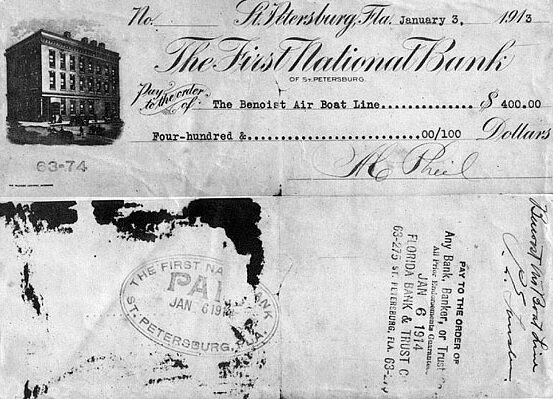 No. St. Petersburg, Fla. January 3, 1913
The First National Bank
OF ST. PETERSBURG.
Pay to the order of. The Benoist Air Boat Line............... $ 400.00
Four-hundred &...........................00/100 Dollars
63-74
A C Pheil
THE FIRST NA BANK
PAI
JAN 6 191
ST. PETERSBURG, FLA.
PAY TO THE ORDER OF
Any Bank, Banker, or Trust
All Prior Endorsements Guarantee
JAN 6 1914
FLORIDA BANK & TRUST C
63-275 ST. PETERSBURG, FLA. 63-
Benoist Air Boat Line